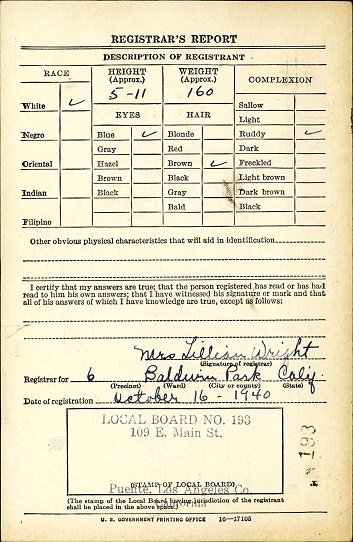 REGISTRAR'S REPORT
DESCRIPTION OF REGISTRANT
RACE
HEIGHT (Approx.)
WEIGHT (Approx.)
COMPLEXION
5-11
160
White ✓
EYES
HAIR
Sallow
Light
Negro
Blue ✓
Blonde
Ruddy ✓
Gray
Red
Dark
Oriental
Hazel
Brown ✓
Freckled
Brown
Black
Light brown
Indian
Black
Gray
Dark brown
Bald
Black
Filipino
Other obvious physical characteristics that will aid in identification
I certify that my answers are true; that the person registered has read or has had
read to him his own answers; that I have witnessed his signature or mark and that
all of his answers of which I have knowledge are true, except as follows:
Mrs Lillian Wright
(Signature of registrar)
Registrar for 6 Baldwin Park Calif
(Precinct) (Ward) (City or county) (State)
Date of registration October 16 - 1940
LOCAL BOARD NO. 193
109 E. Main St.
193
(STAMP OF LOCAL BOARD)
Puente, Los Angeles Co.
California
(The stamp of the Local Board having jurisdiction of the registrant
shall be placed in the above space.)
U. S. GOVERNMENT PRINTING OFFICE 16—17105